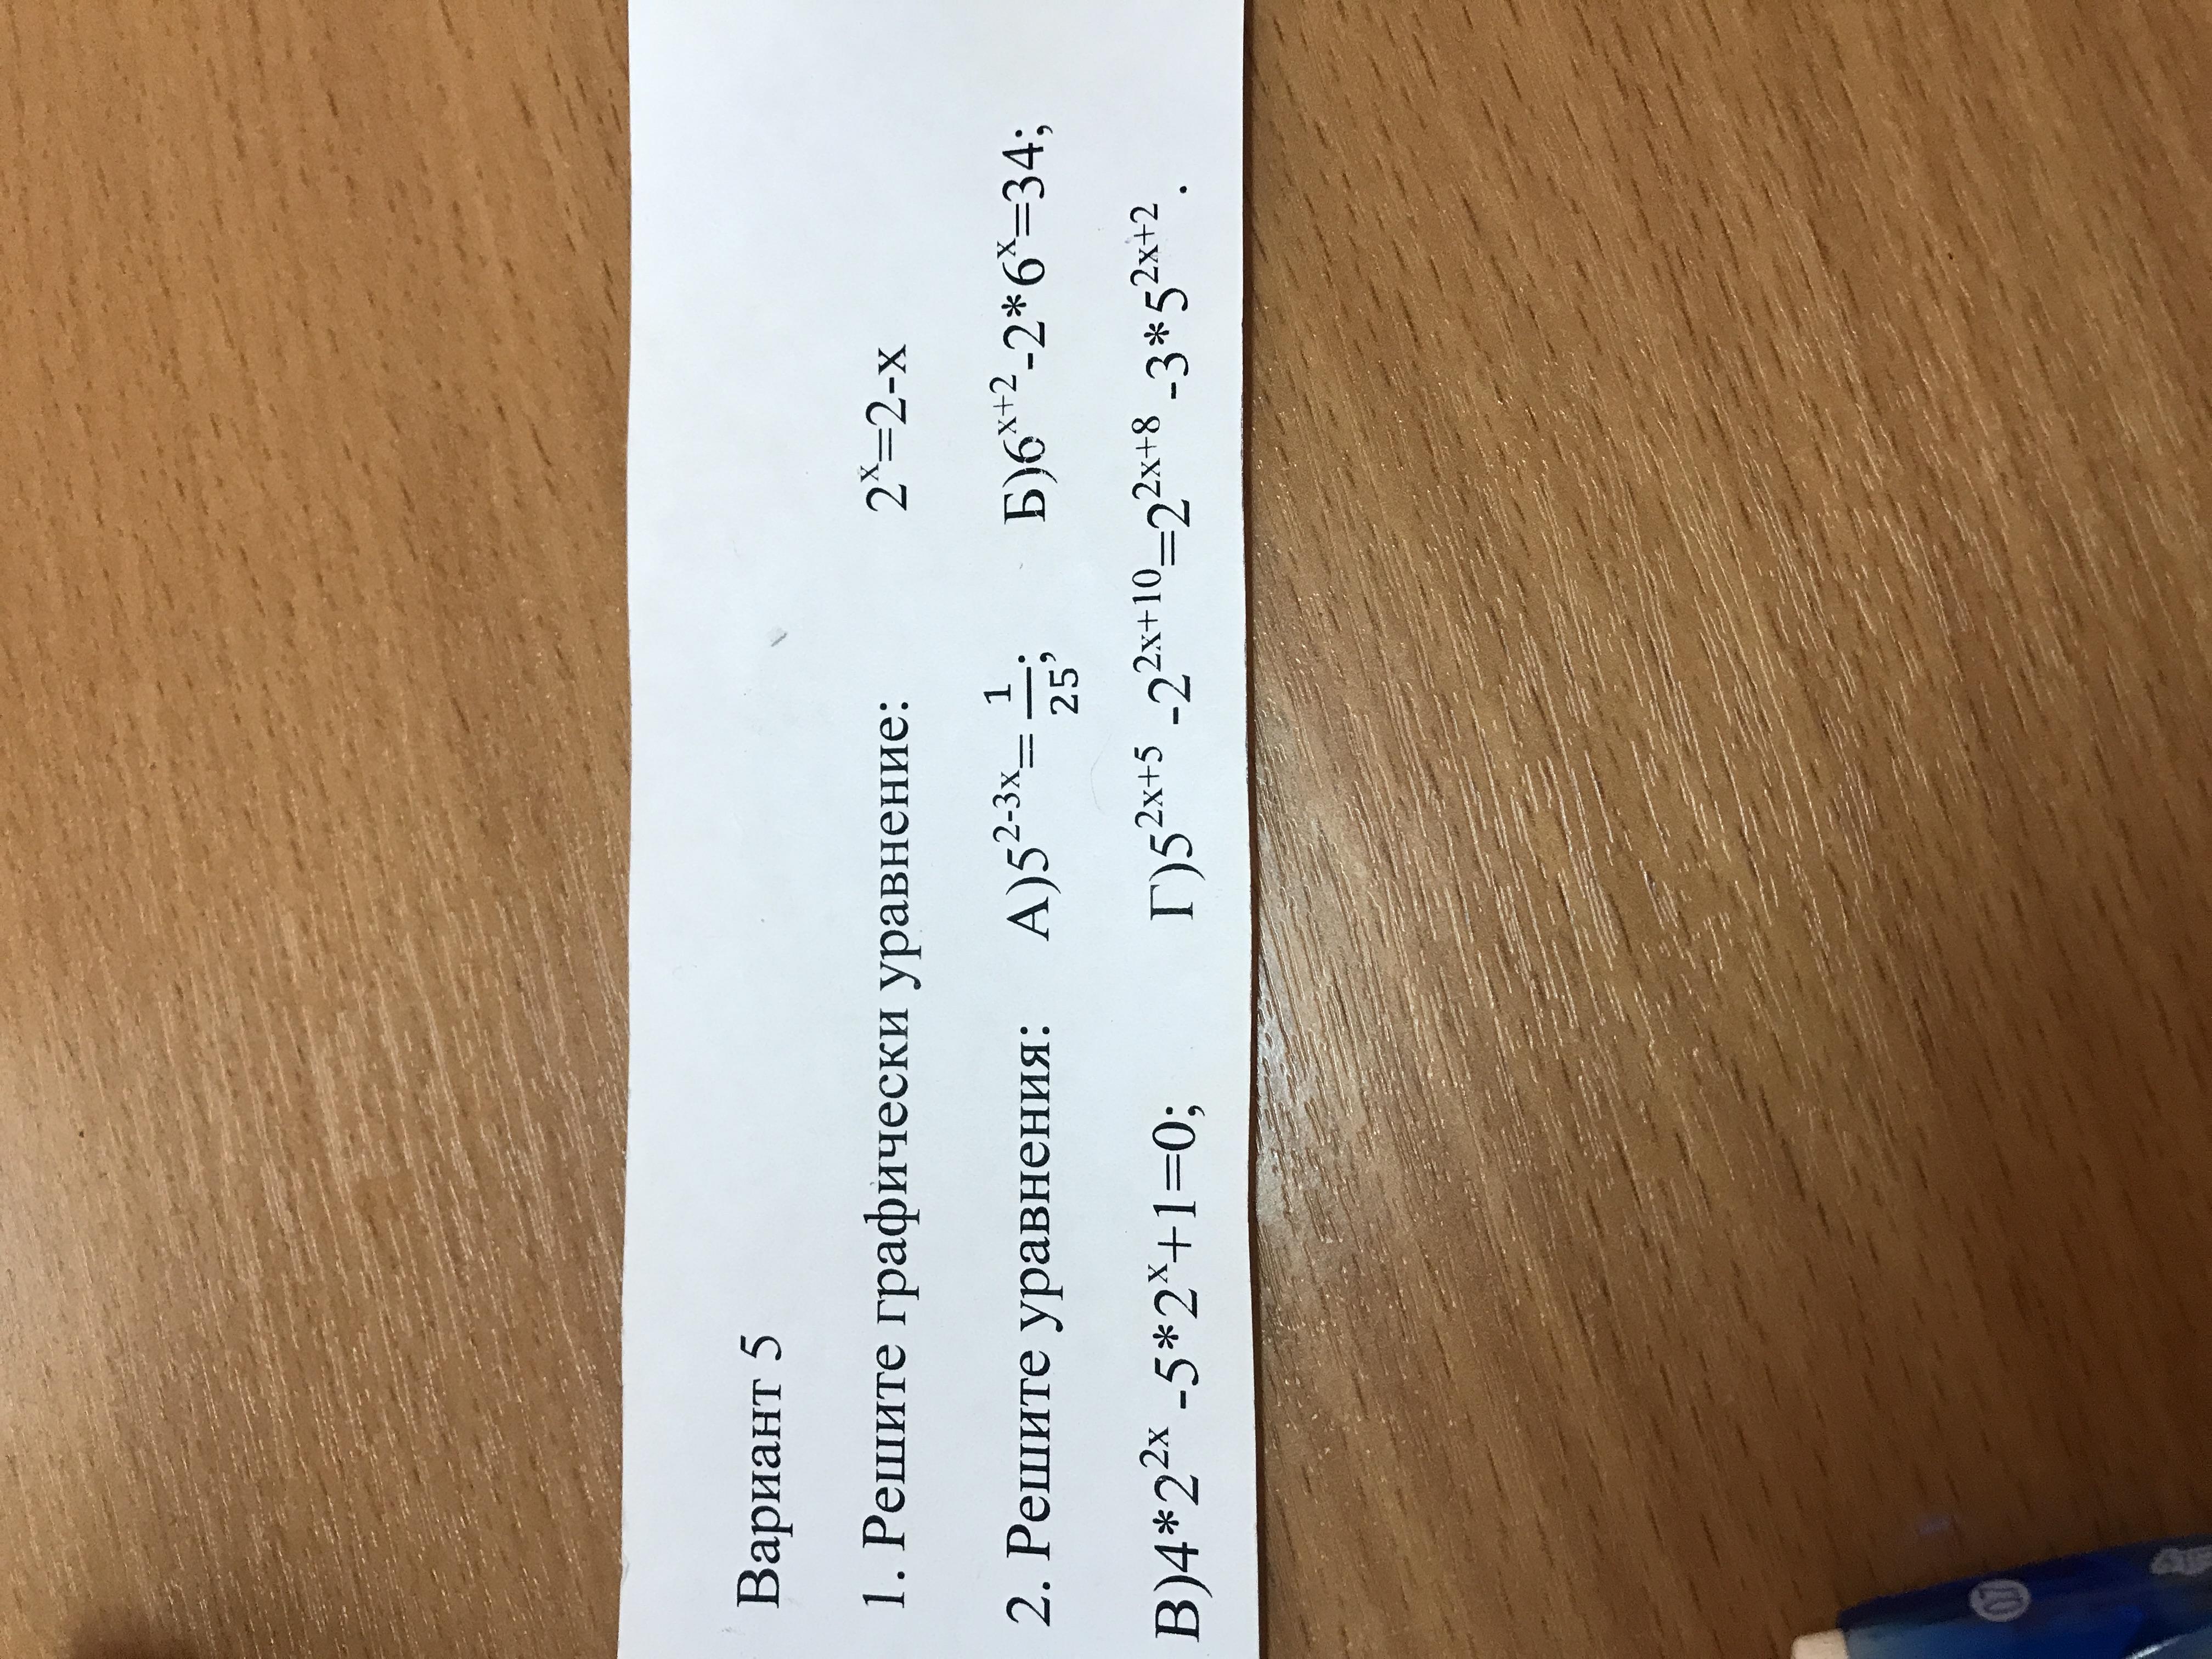 Вариант 5
1. Решите графически уравнение: 2ˣ=2-x
2. Решите уравнения: А)5²⁻³ˣ=1/25; Б)6ˣ⁺²-2*6ˣ=34;
В)4*2²ˣ-5*2ˣ+1=0; Г)5²ˣ⁺⁵-2²ˣ⁺¹⁰=2²ˣ⁺⁸-3*5²ˣ⁺².